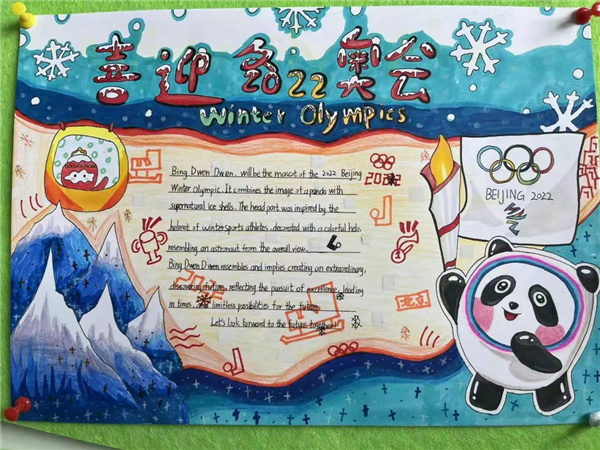 喜迎冬2022奥会
Winter Olympics
Bing Dwen Dwen, will be the mascot of the 2022 Beijing
Winter Olympic. It combines the image of a panda with
supernatural ice shells. The head part was inspired by the
helmet of wintersports athletes, decorated with a colorful halo,
resembling an astronaut from the overall view.
Bing Dwen Dwen resembles and implies creating an extraordinary,
future, reflecting the pursuit of excellence, leading
in times, and limitless possibilities for the future.
Let's look forward to the future together!
BEIJING 2022